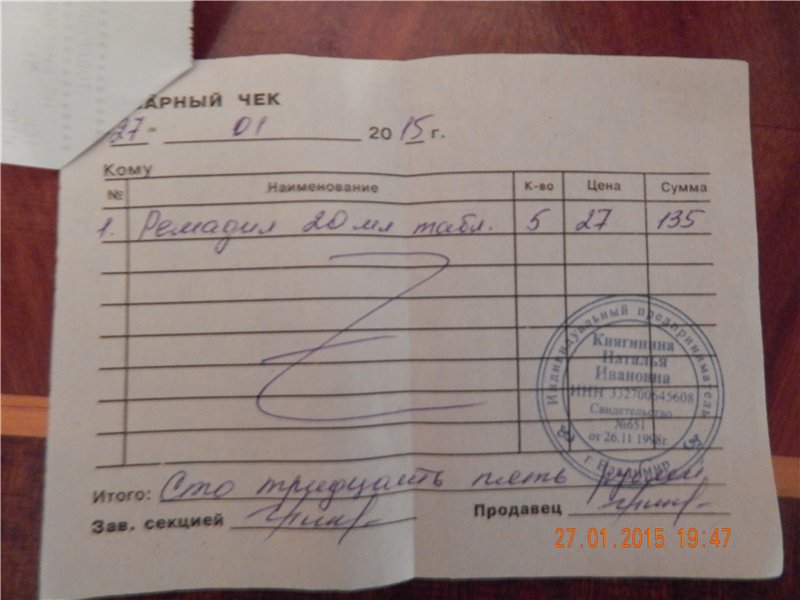 АРНЫЙ ЧЕК
27 " 01 2015 г.
Кому
№ Наименование К-во Цена Сумма
1. Ремадил 20 мл табл. 5 27 135
Индивидуальный предприниматель
Княгинина
Наталья
Ивановна
ИНН 332700645608
Свидетельство
№651
от 26.11 1998г.
г Владимир
Итого: Сто тридцать пять рублей
Зав. секцией
Продавец
27.01.2015 19:47